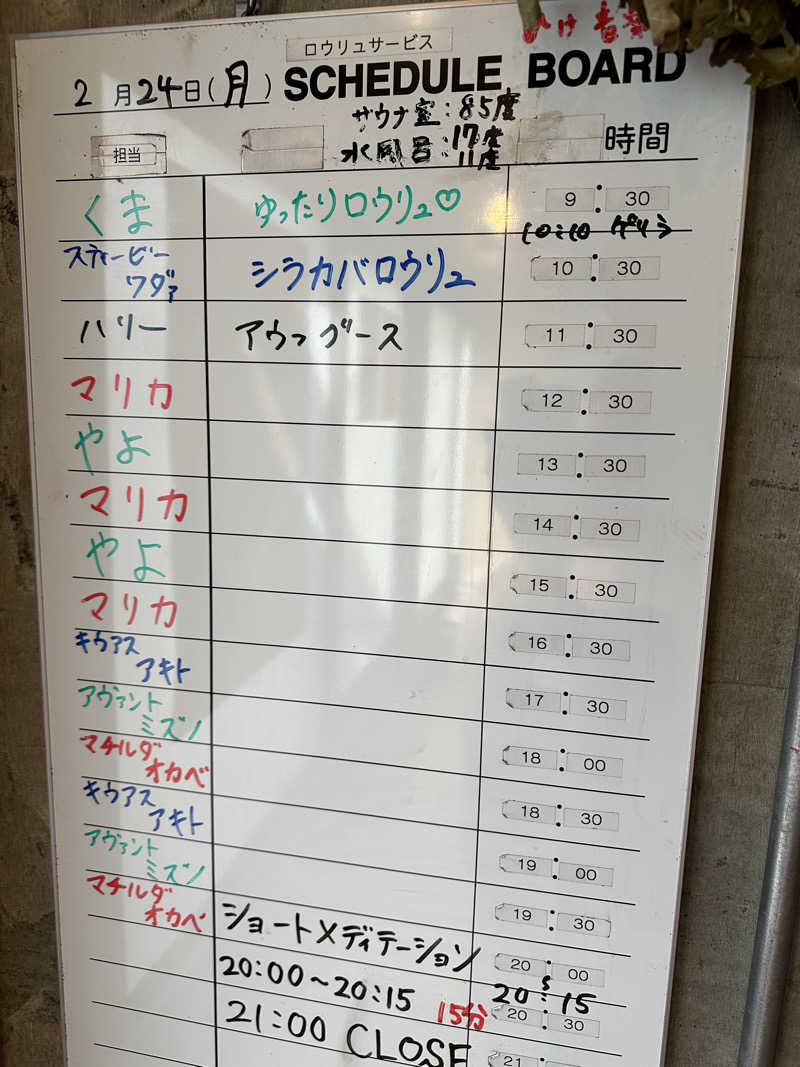 ロウリュサービス
2月24日(月) SCHEDULE BOARD
サウナ室:85度
水風呂:17度
11度
担当
時間
くま ゆったりロウリュ♡ 9:30
10:10 ゲリラ
スティービー
ワダァ シラカバロウリュ 10:30
ハリー アウフグース 11:30
マリカ 12:30
やよ 13:30
マリカ 14:30
やよ 15:30
マリカ 16:30
キウアス
アキト 17:30
アヴァント
ミズノ 18:00
マチルダ
オカベ 18:30
キウアス
アキト 19:00
アヴァント
ミズノ 19:30
マチルダ
オカベ ショートメディテーション 20:00
20:00~20:15 15分 20:15
20:30
21:00 CLOSE 21